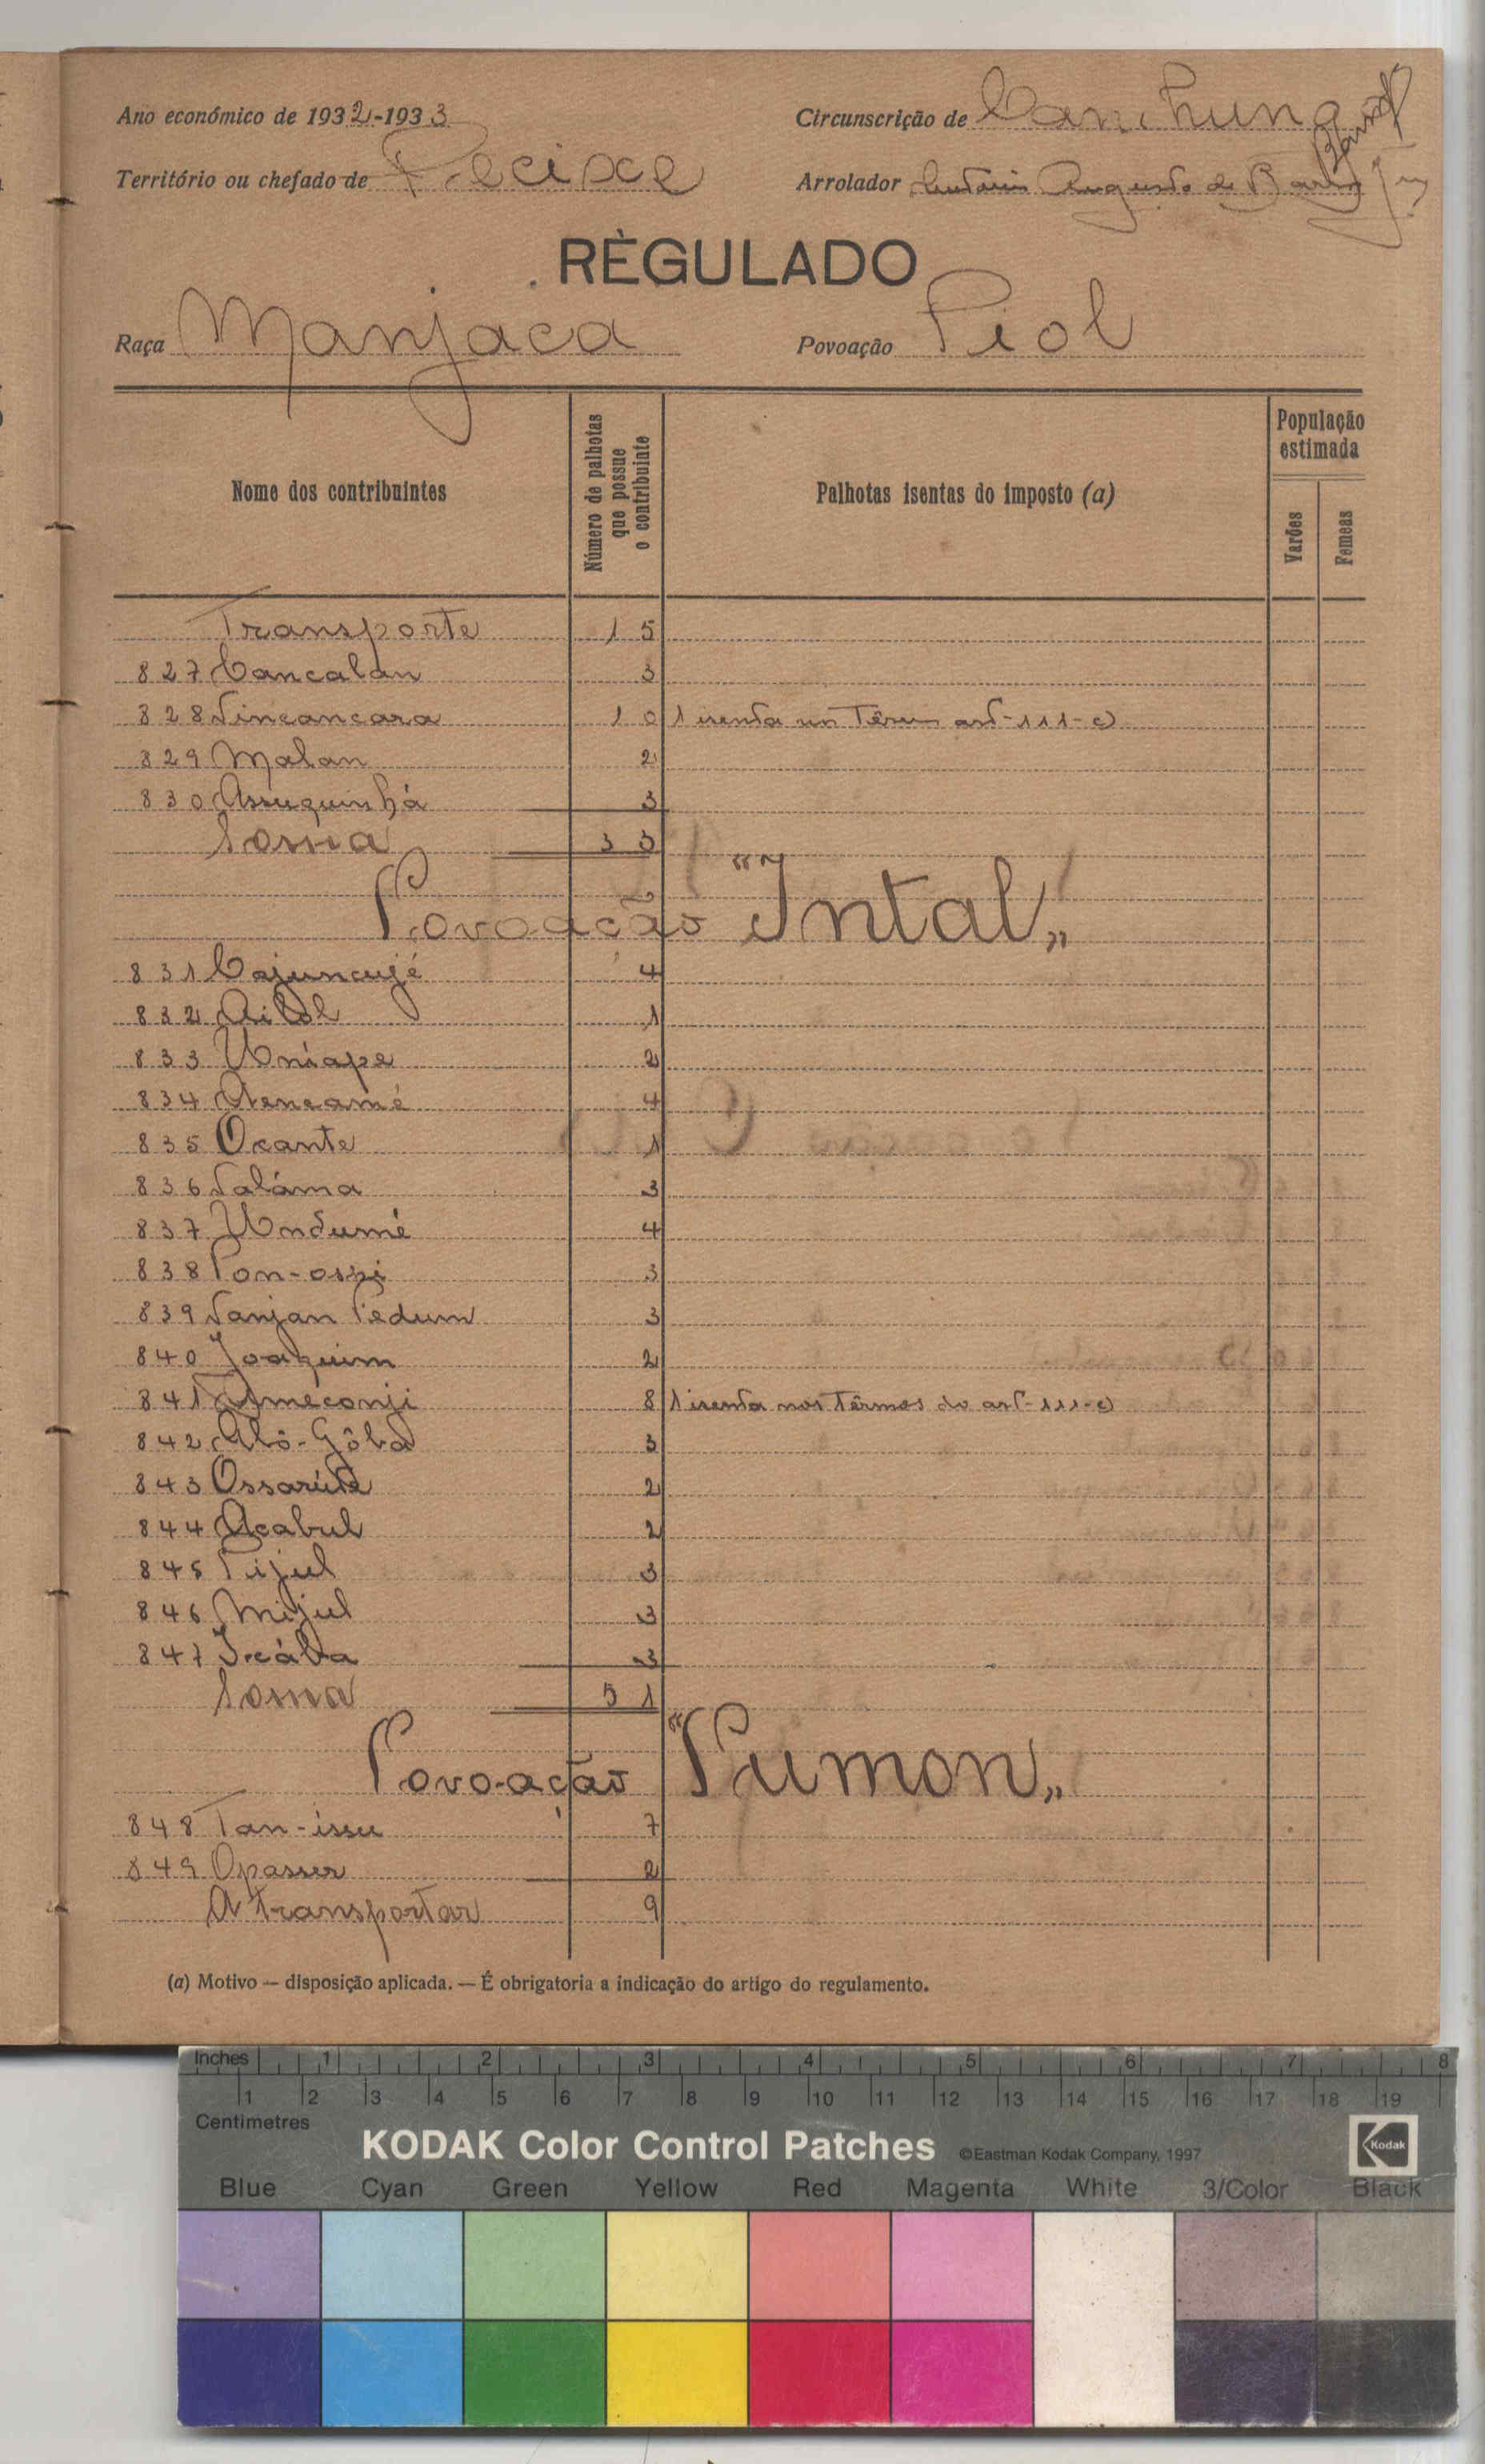 Ano económico de 1932-1933
Circunscrição de Canchungo
Território ou chefado de Pecixe
Arrolador António Augusto de Barros
RÈGULADO
Raça Manjaca
Povoação Piol
Nome dos contribuintes
Número de palhotas que possue o contribuinte
Palhotas isentas do imposto (a)
População estimada
Varões
Femeas
Transporte 15
827 Cancalan 3
828 Nincancara 10 1 isenta nos Têrmos art-111-c)
829 Malan 2
830 Assuquinhá 3
Soma 33
Povoação "Intal"
831 Cajuncujé 4
832 Aibol 1
833 Uniape 2
834 Aencamé 4
835 Ocante 1
836 Naláma 3
837 Undumé 4
838 Pon-ossi 3
839 Nanjan Pedum 3
840 Joaquim 2
841 Ameconji 8 1 isenta nos Têrmos do art-111-c)
842 Alô-Gôba 3
843 Ossarúta 2
844 Acabul 2
845 Pijul 3
846 Mijul 3
847 Icába 3
Soma 51
Povoação "Pumon"
848 Tan-issu 7
849 Opasser 2
A transportar 9
(a) Motivo — disposição aplicada. — É obrigatoria a indicação do artigo do regulamento.
Inches 1 2 3 4 5 6 7 8
1 2 3 4 5 6 7 8 9 10 11 12 13 14 15 16 17 18 19
Centimetres
KODAK Color Control Patches ©Eastman Kodak Company, 1997 Kodak
Blue Cyan Green Yellow Red Magenta White 3/Color Black